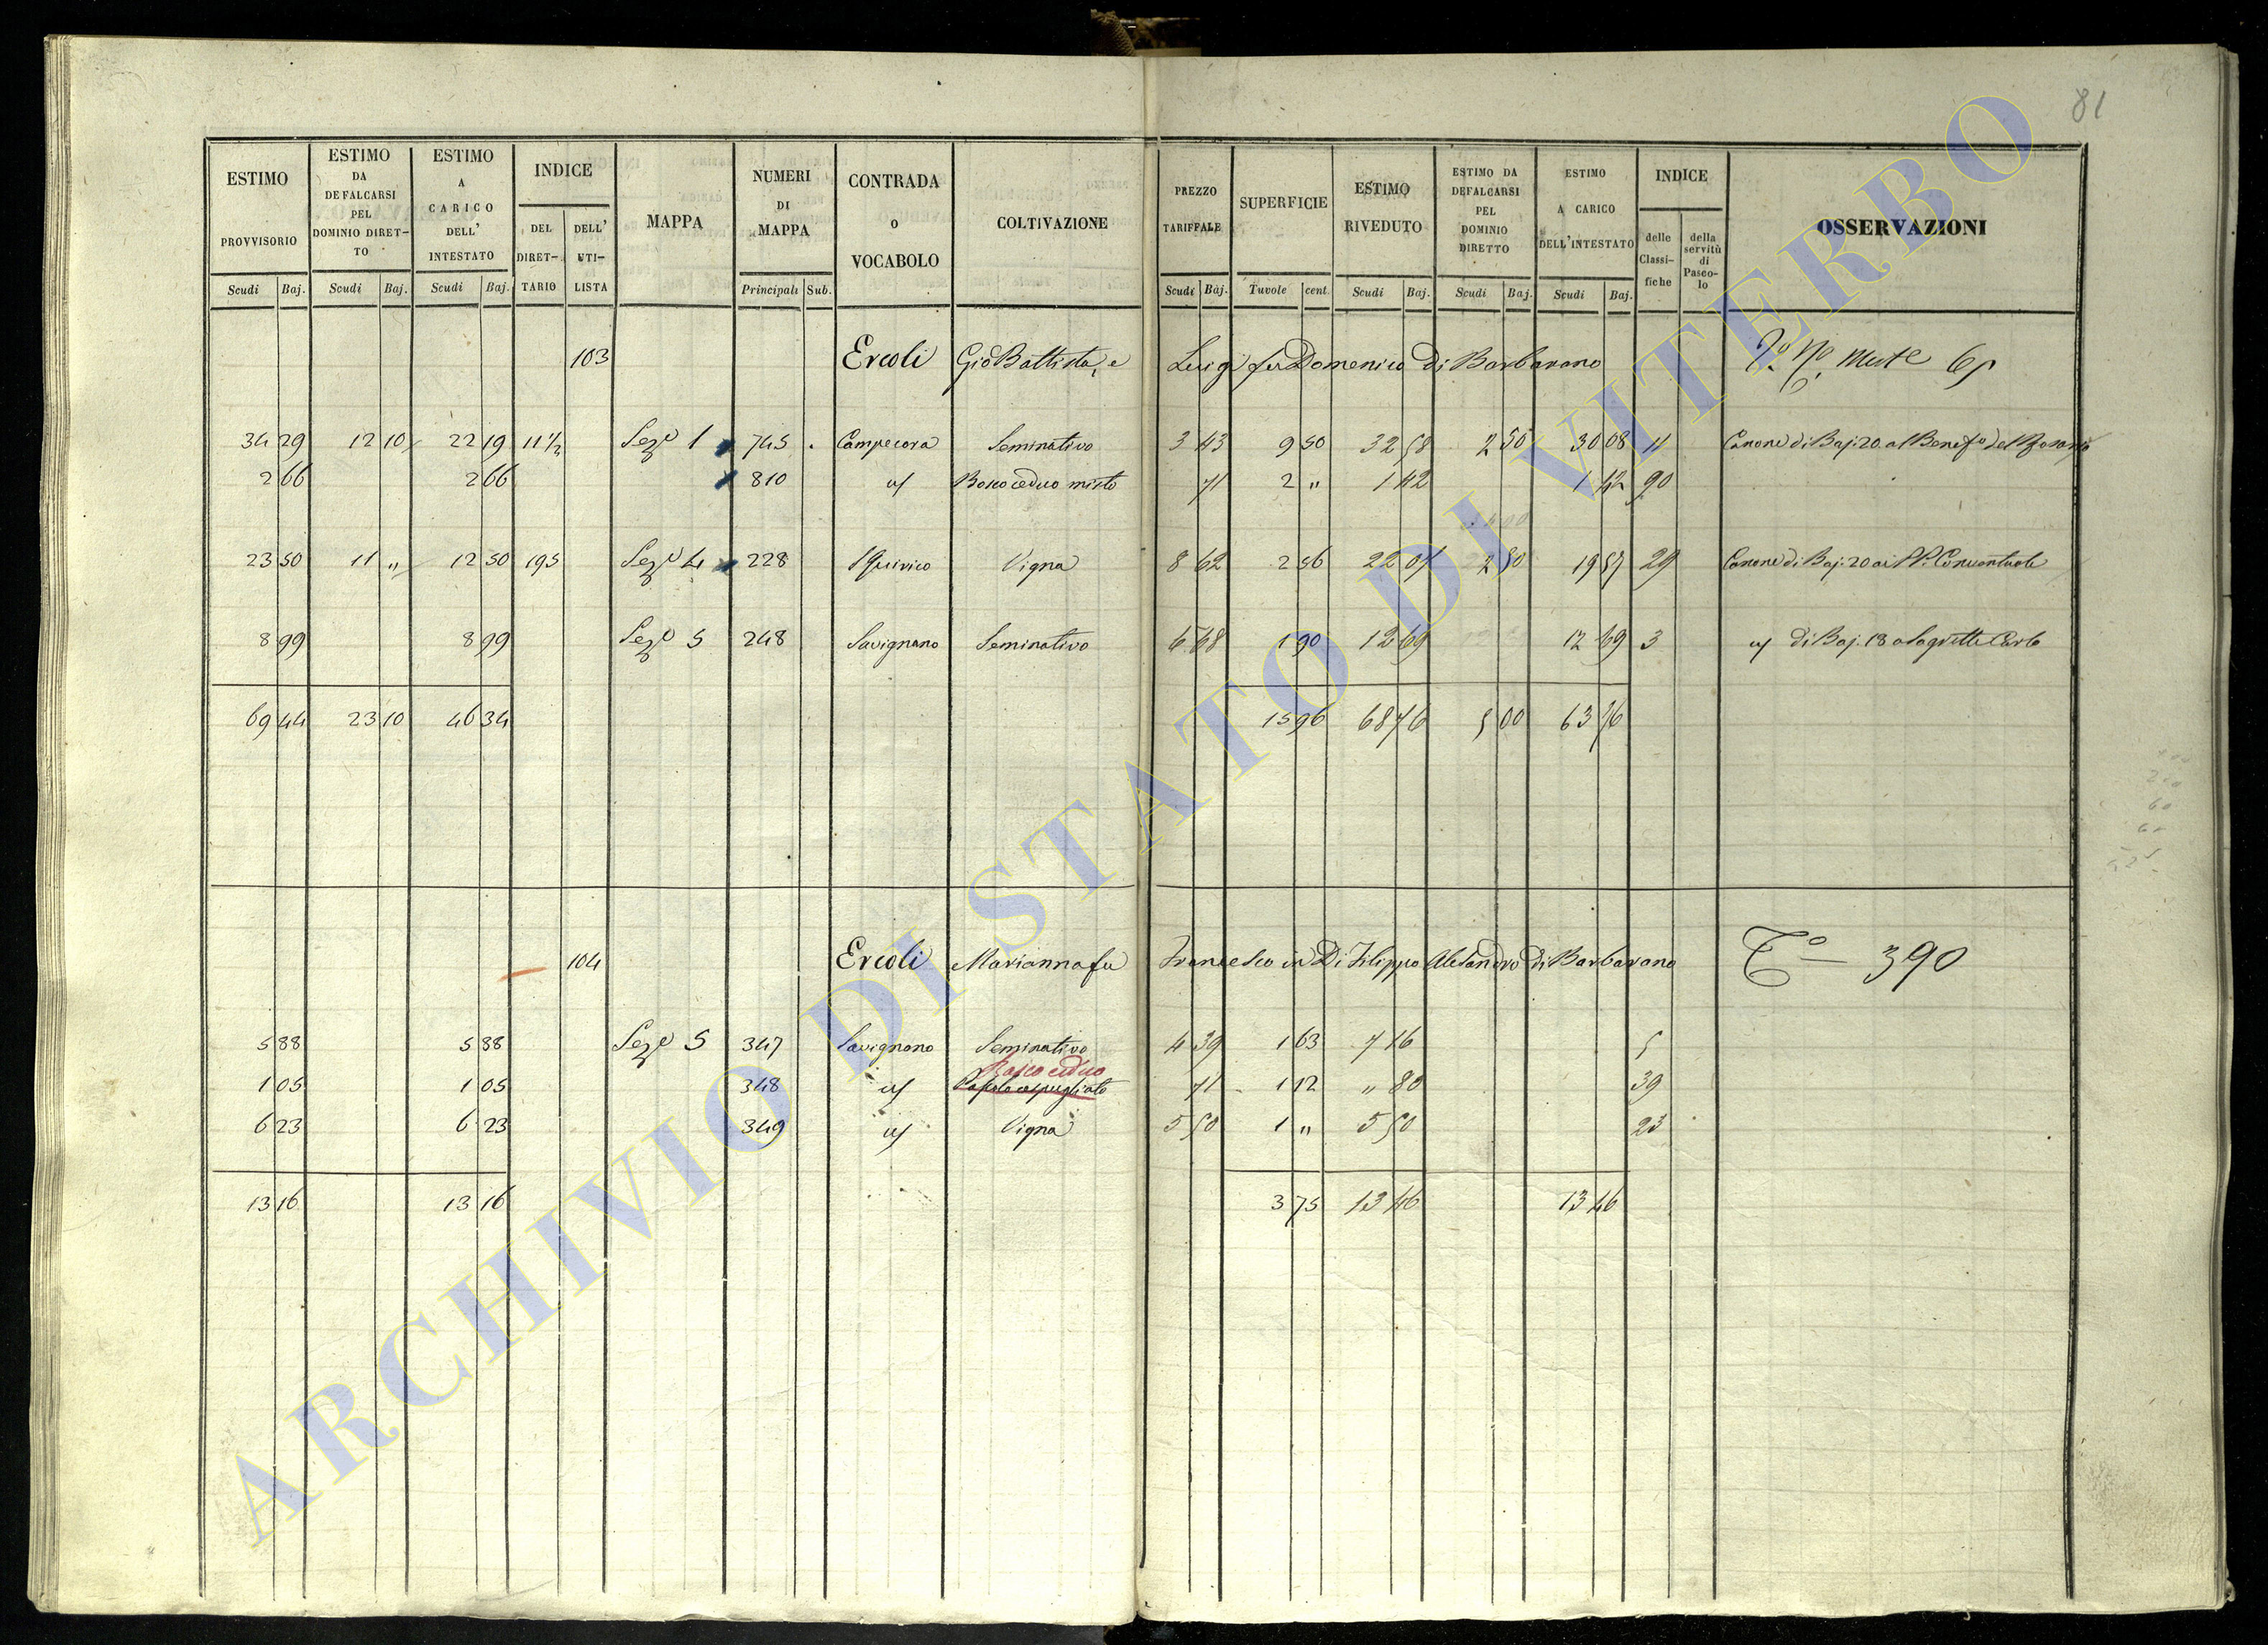 81
ESTIMO PROVVISORIO Scudi Baj. ESTIMO DA DEFALCARSI PEL DOMINIO DIRETTO Scudi Baj. ESTIMO A CARICO DELL' INTESTATO Scudi Baj. INDICE DEL DIRETTARIO DELL' UTILISTA MAPPA NUMERI DI MAPPA Principali Sub. CONTRADA O VOCABOLO COLTIVAZIONE PREZZO TARIFFALE Scudi Baj. SUPERFICIE Tavole cent. ESTIMO RIVEDUTO Scudi Baj. ESTIMO DA DEFALCARSI PEL DOMINIO DIRETTO Scudi Baj. ESTIMO A CARICO DELL'INTESTATO Scudi Baj. INDICE delle Classifiche della servitù di Pascolo OSSERVAZIONI
103 Ercoli Gio Battista, e Luigi fu Domenico di Barbarano
34 29 12 10 22 19 11 1/2 Sez.e 1 745 Campecora Seminativo 3 43 9 50 32 58 2 50 30 08 11 Canone di Baj: 20 al Benef.o del Rosario
2 66 2 66 810 " Bosco ceduo misto 71 2 " 1 42 1 42 90
23 50 11 " 12 50 195 Sez.e 4 228 S Quirico Vigna 8 62 2 56 22 07 2 50 19 57 29 Canone di Baj: 20 ai PP. Conventuali
8 99 8 99 Sez.e 5 248 Savignano Seminativo 6 68 1 90 12 69 12 69 3 di Baj. 18 a Carlo
69 44 23 10 46 34 15 96 68 76 5 00 63 76
104 Ercoli Marianna fu Francesco in Di Filippo Alesandro di Barbarano T.o — 390
5 88 5 88 Sez.e 5 347 Savignano Seminativo 4 39 1 63 7 16 5
Bosco ceduo
1 05 1 05 348 " Pascolo cespugliato 71 1 12 " 80 39
6 23 6 23 349 " Vigna 5 50 1 " 5 50 23
13 16 13 16 3 75 13 46 13 46
ARCHIVIO DI STATO DI VITERBO